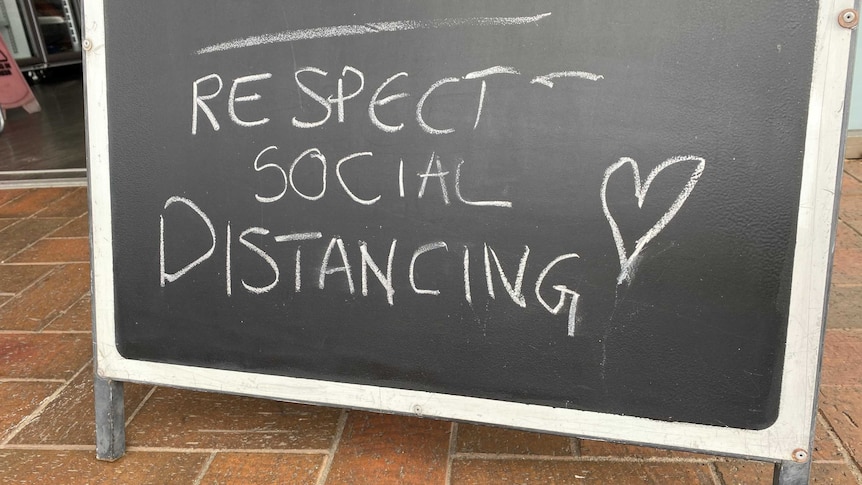 RESPECT
SOCIAL
DISTANCING